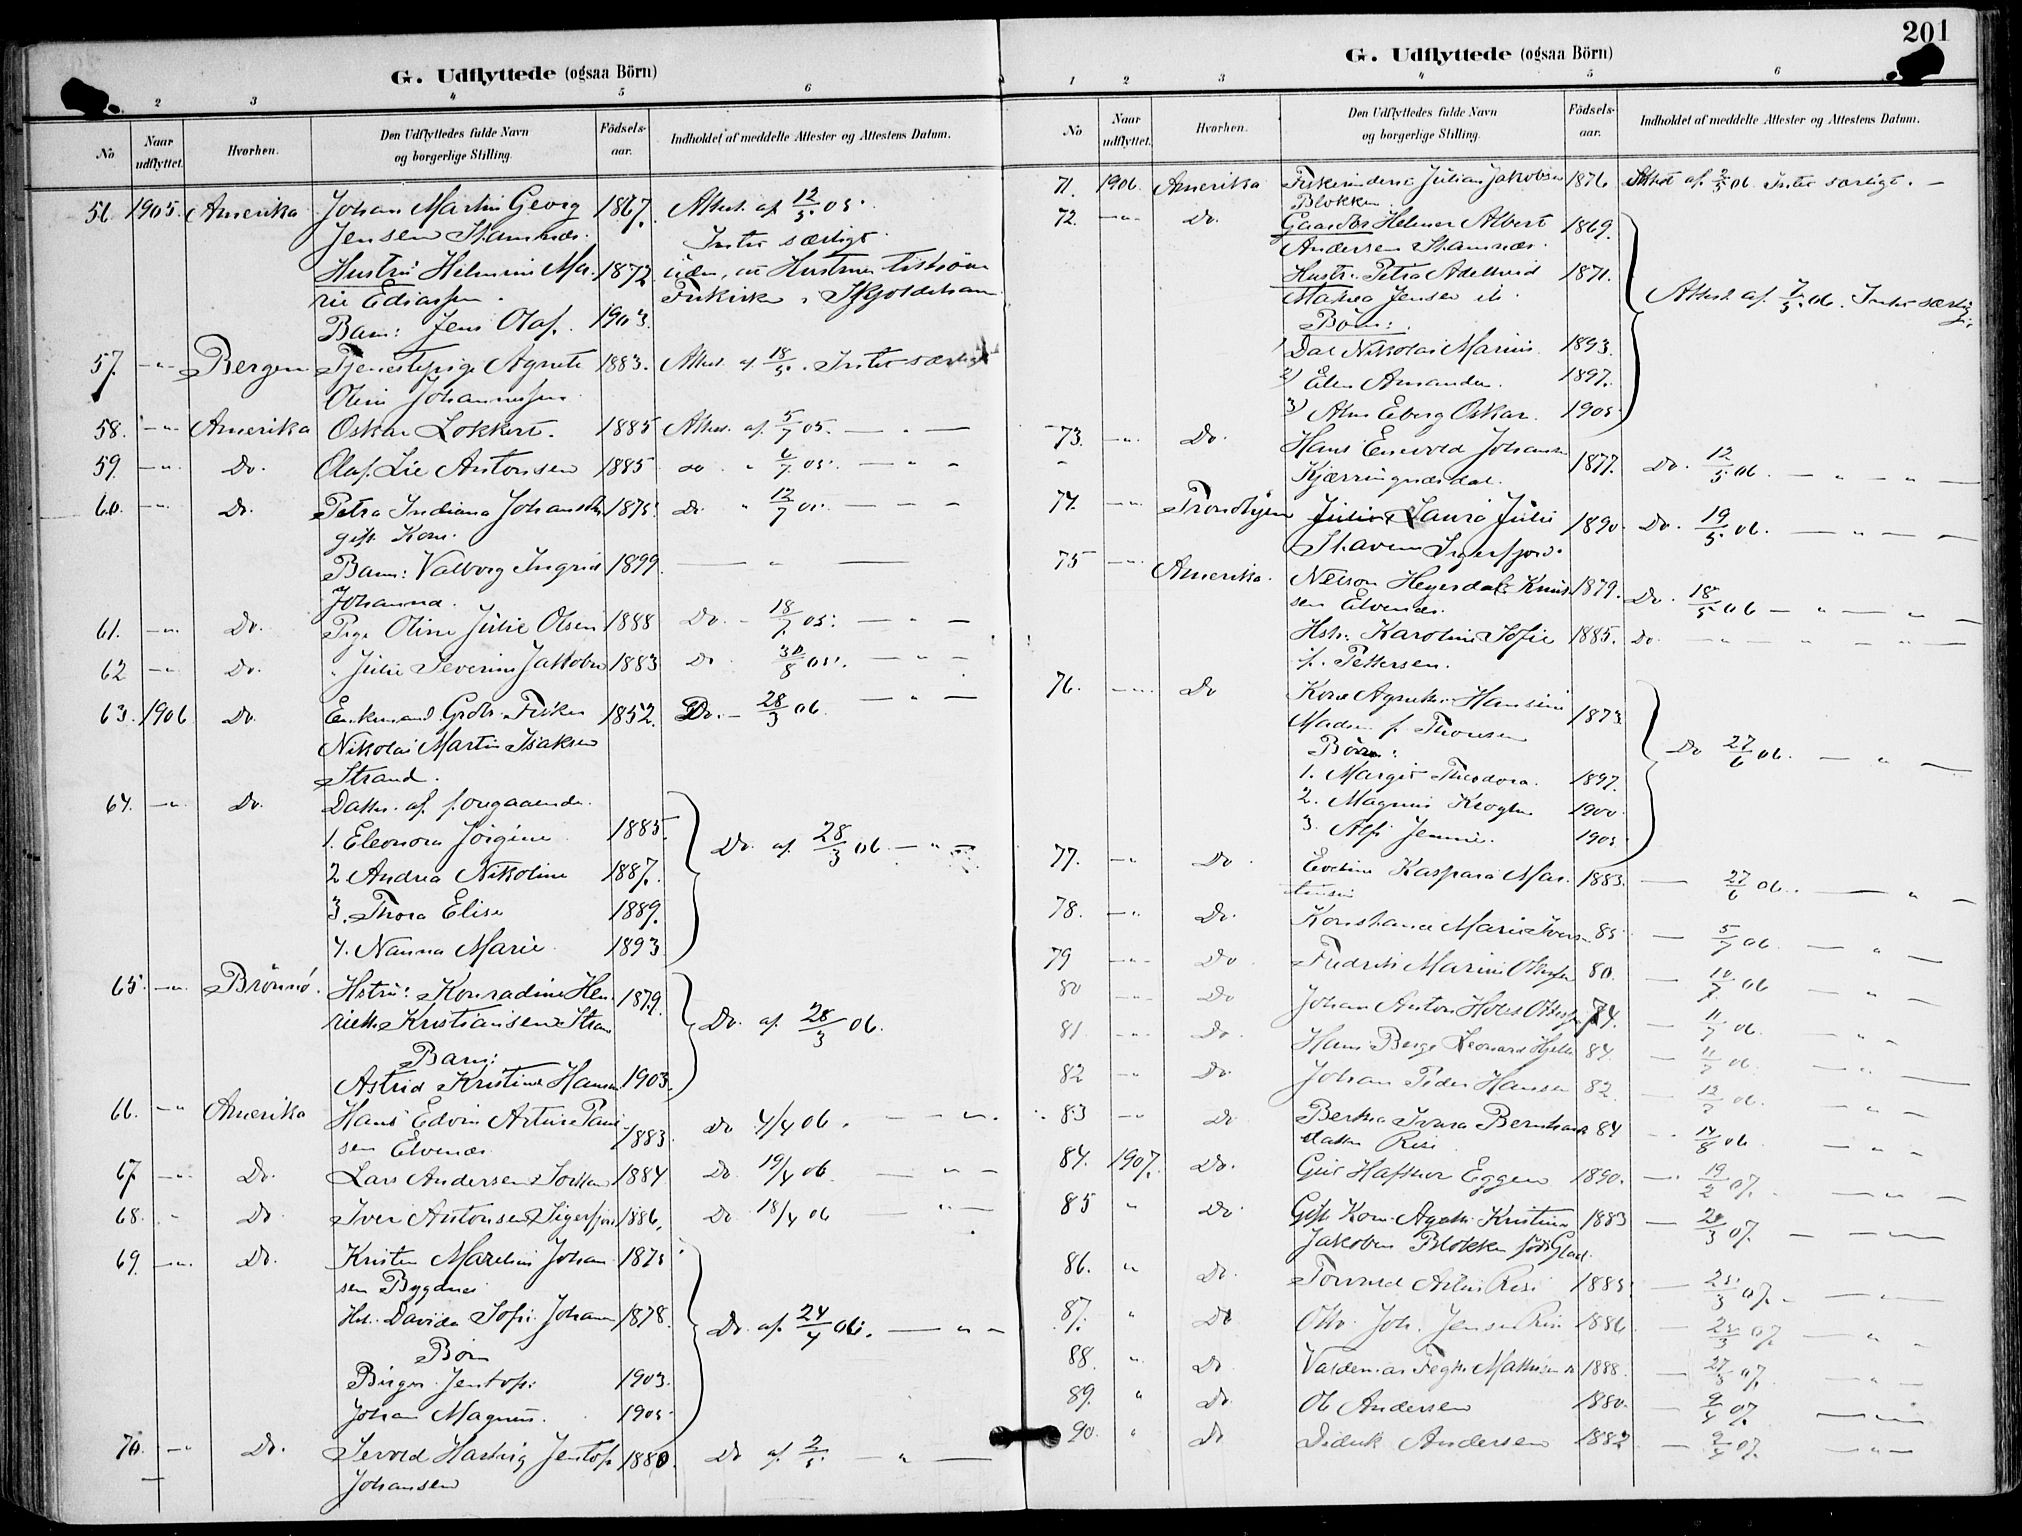 201
G. Udflyttede (ogsaa Börn)
2 3 4 5 6
No
Naar udflyttet.
Hvorhen.
Den Udflyttedes fulde Navn og borgerlige Stilling.
Födsels-aar.
Indholdet af meddelte Attester og Attestens Datum.
56. 1905. Amerika Johan Martin Georg 1867. Attest. af 12/5 05.
Jensen Stamnæs. Intet særligt
Hustru Helmine Ma- 1872 uden, at Hustruen
rie Ediassen. Skjoldehavn
Barn: Jens Olaf. 1903.
57. -"- Bergen Tjenestepige Agnete 1883. Attest. af 18/5. Intet særligt
Oline Johannessen
58. -"- Amerika Oskar Lokkert. 1885 Attest. af 5/7 05. — " —
59. -"- Do. Olaf Lie Antonsen 1885 do " 6/7 05. — " —
60. -"- Do. Petra Indiana Johansen 1875 Do " 12/7 05. — " —
gift Kone.
Barn: Valborg Ingrid 1899. — " —
Johanna.
61. -"- Do. Pige Oline Julie Olsen 1888 Do. - 18/7 05. — " —
62 -"- Do. " Julie Severine Jakobsen 1883 Do 30/8 05. — " —
63. 1906 Do. Enkemand Grdbr. Fisker 1852. Do. - 28/3 06. — " —
Nikolai Martin Isaksen
Strand.
64. -"- Do. Døtter af foregaaende.
1. Eleonora Jörgine 1885.
2 Andrea Nikoline 1887. Do. af 28/3 06. — " —
3. Thora Elise 1889.
4. Nanna Marie 1893
65. -"- Brönnö. Hstru: Konradine Hen- 1879.
riette Kristiansen Strand Do. af 28/3 06.
Barn:
Astrid Kristine Hansen 1903.
66. -"- Amerika Hans Edvin Artur Paul- 1883. Do 4/4 06. — " —
sen Elvenæs
67. -"- Do. Lars Andersen 1884 Do. 19/4 06. — " —
68. " Do. Iver Antonsen Sigerfjord 1886. Do. 18/4 06 — " —
69. -"- Do. Kristen Marelius Johan- 1875
sen Bygdnes
Hst. Davida Sofie Johansen 1878. Do. af 24/4 06. — " —
Börn
Birger Jentof. 1903.
Johan Magnus. 1905
70. -"- Do. Sevold Hartvig Jentof. 1880. Do af 2/5. — " —
Johansen
G. Udflyttede (ogsaa Börn)
1 2 3 4 5 6
No
Naar udflyttet.
Hvorhen.
Den Udflyttedes fulde Navn og borgerlige Stilling.
Födsels-aar.
Indholdet af meddelte Attester og Attestens Datum.
71. 1906. Amerika Julian Jakobsen 1876 Attest af 2/5 06. Intet særligt. —
Blokken.
72. -"- Do. Gaardbr Helmer Albert 1869.
Andersen Stamnæs.
Hustr. Petra Adelheid 1871. Attest. af 7/5 06. Intet særlig
Jensen ib.
Börn:
1) Dal Nikolai Marius 1893.
2) Elen Amanda. 1897.
3) Alm Eberg Oskar. 1905
73. -"- Do. Hans Enevold Johansen 1877. Do. 12/5 06. — " — " —
Kjærringnæsdal.
74. -"- Trondhjem Laura Julie 1890. Do. 19/5 06. — " —
Sigerfjord.
75 -"- Amerika. Nelson Heyerdal Knut- 1879. Do. 18/5 06 — " — " —
sen Elvenæs.
Hstr. Karoline Sofie 1885. Do — " —
f. Pettersen.
76. -"- Do Kone Agnethe Hansine 1873
Madsen f. Thomsen
Börn: Do 27/6 06. — " —
1. Margit Theodora. 1897.
2. Magnus Krogh 1900.
3. Alfi Jennie. 1905
77. -"- Do Eveline Kaspara Mar- 1883. — 27/6 06. — " —
tensen
78. -"- Do. Konstance Marie Iversen 85 — 5/7 06. — " —
79 -"- Do Fredrik Marius 80. — 10/7 06 — " —
80 -"- Do Johan Anton 74. — 11/7 06. — " —
81. -"- Do. Hans Berge Leonard 84. — 11/7 06. — " —
82 -"- Do. Johan Peder Hansen 82. — 12/7 06. — " —
83 -"- Do Bertha Ivara Bernhards- 84 — 14/8 06 — " —
datter Risø
84. 1907. Do. Hafthor Eggen 1890. — 19/2 07. — " —
85 " Do. Gift Kone Agathe Kristine 1883 — 20/3 07. — " —
Jakobsen Blokken född
86. " Do. Torvald Artur Risø 1885 — 25/3 07. — " —
87. " Do Otto Joh. Jensen Risø 1886 — 25/3 07. — " —
88. " Do. Valdemar 1888. — 27/3 07. — " —
89. " Do Ole Andersen 1880. — 9/4 07. — " —
90. " Do Didrik Andersen 1882 — 9/4 07. — " —